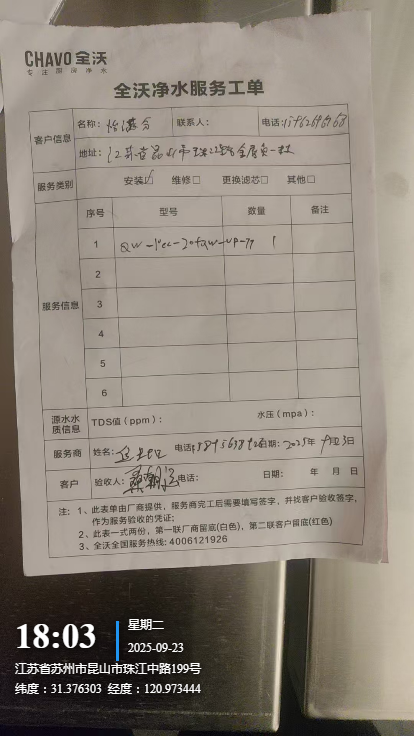 CHAVO全沃
专注厨房净水
全沃净水服务工单
客户信息
名称： 联系人： 电话：
地址：江苏省昆山市珠江路
服务类别 安装☑ 维修□ 更换滤芯□ 其他□
服务信息
序号 型号 数量 备注
1 1
2
3
4
5
6
源水水质信息 TDS值（ppm）： 水压（mpa）：
服务商 姓名： 电话： 日期：2025年9月23日
客户 验收人： 电话： 日期： 年 月 日
注：1、此表单由厂商提供，服务商完工后需要填写签字，并找客户验收签字，
作为服务验收的凭证；
2、此表一式两份，第一联厂商留底(白色)，第二联客户留底(红色)
3、全沃全国服务热线：4006121926
18:03
星期二
2025-09-23
江苏省苏州市昆山市珠江中路199号
纬度：31.376303 经度：120.973444